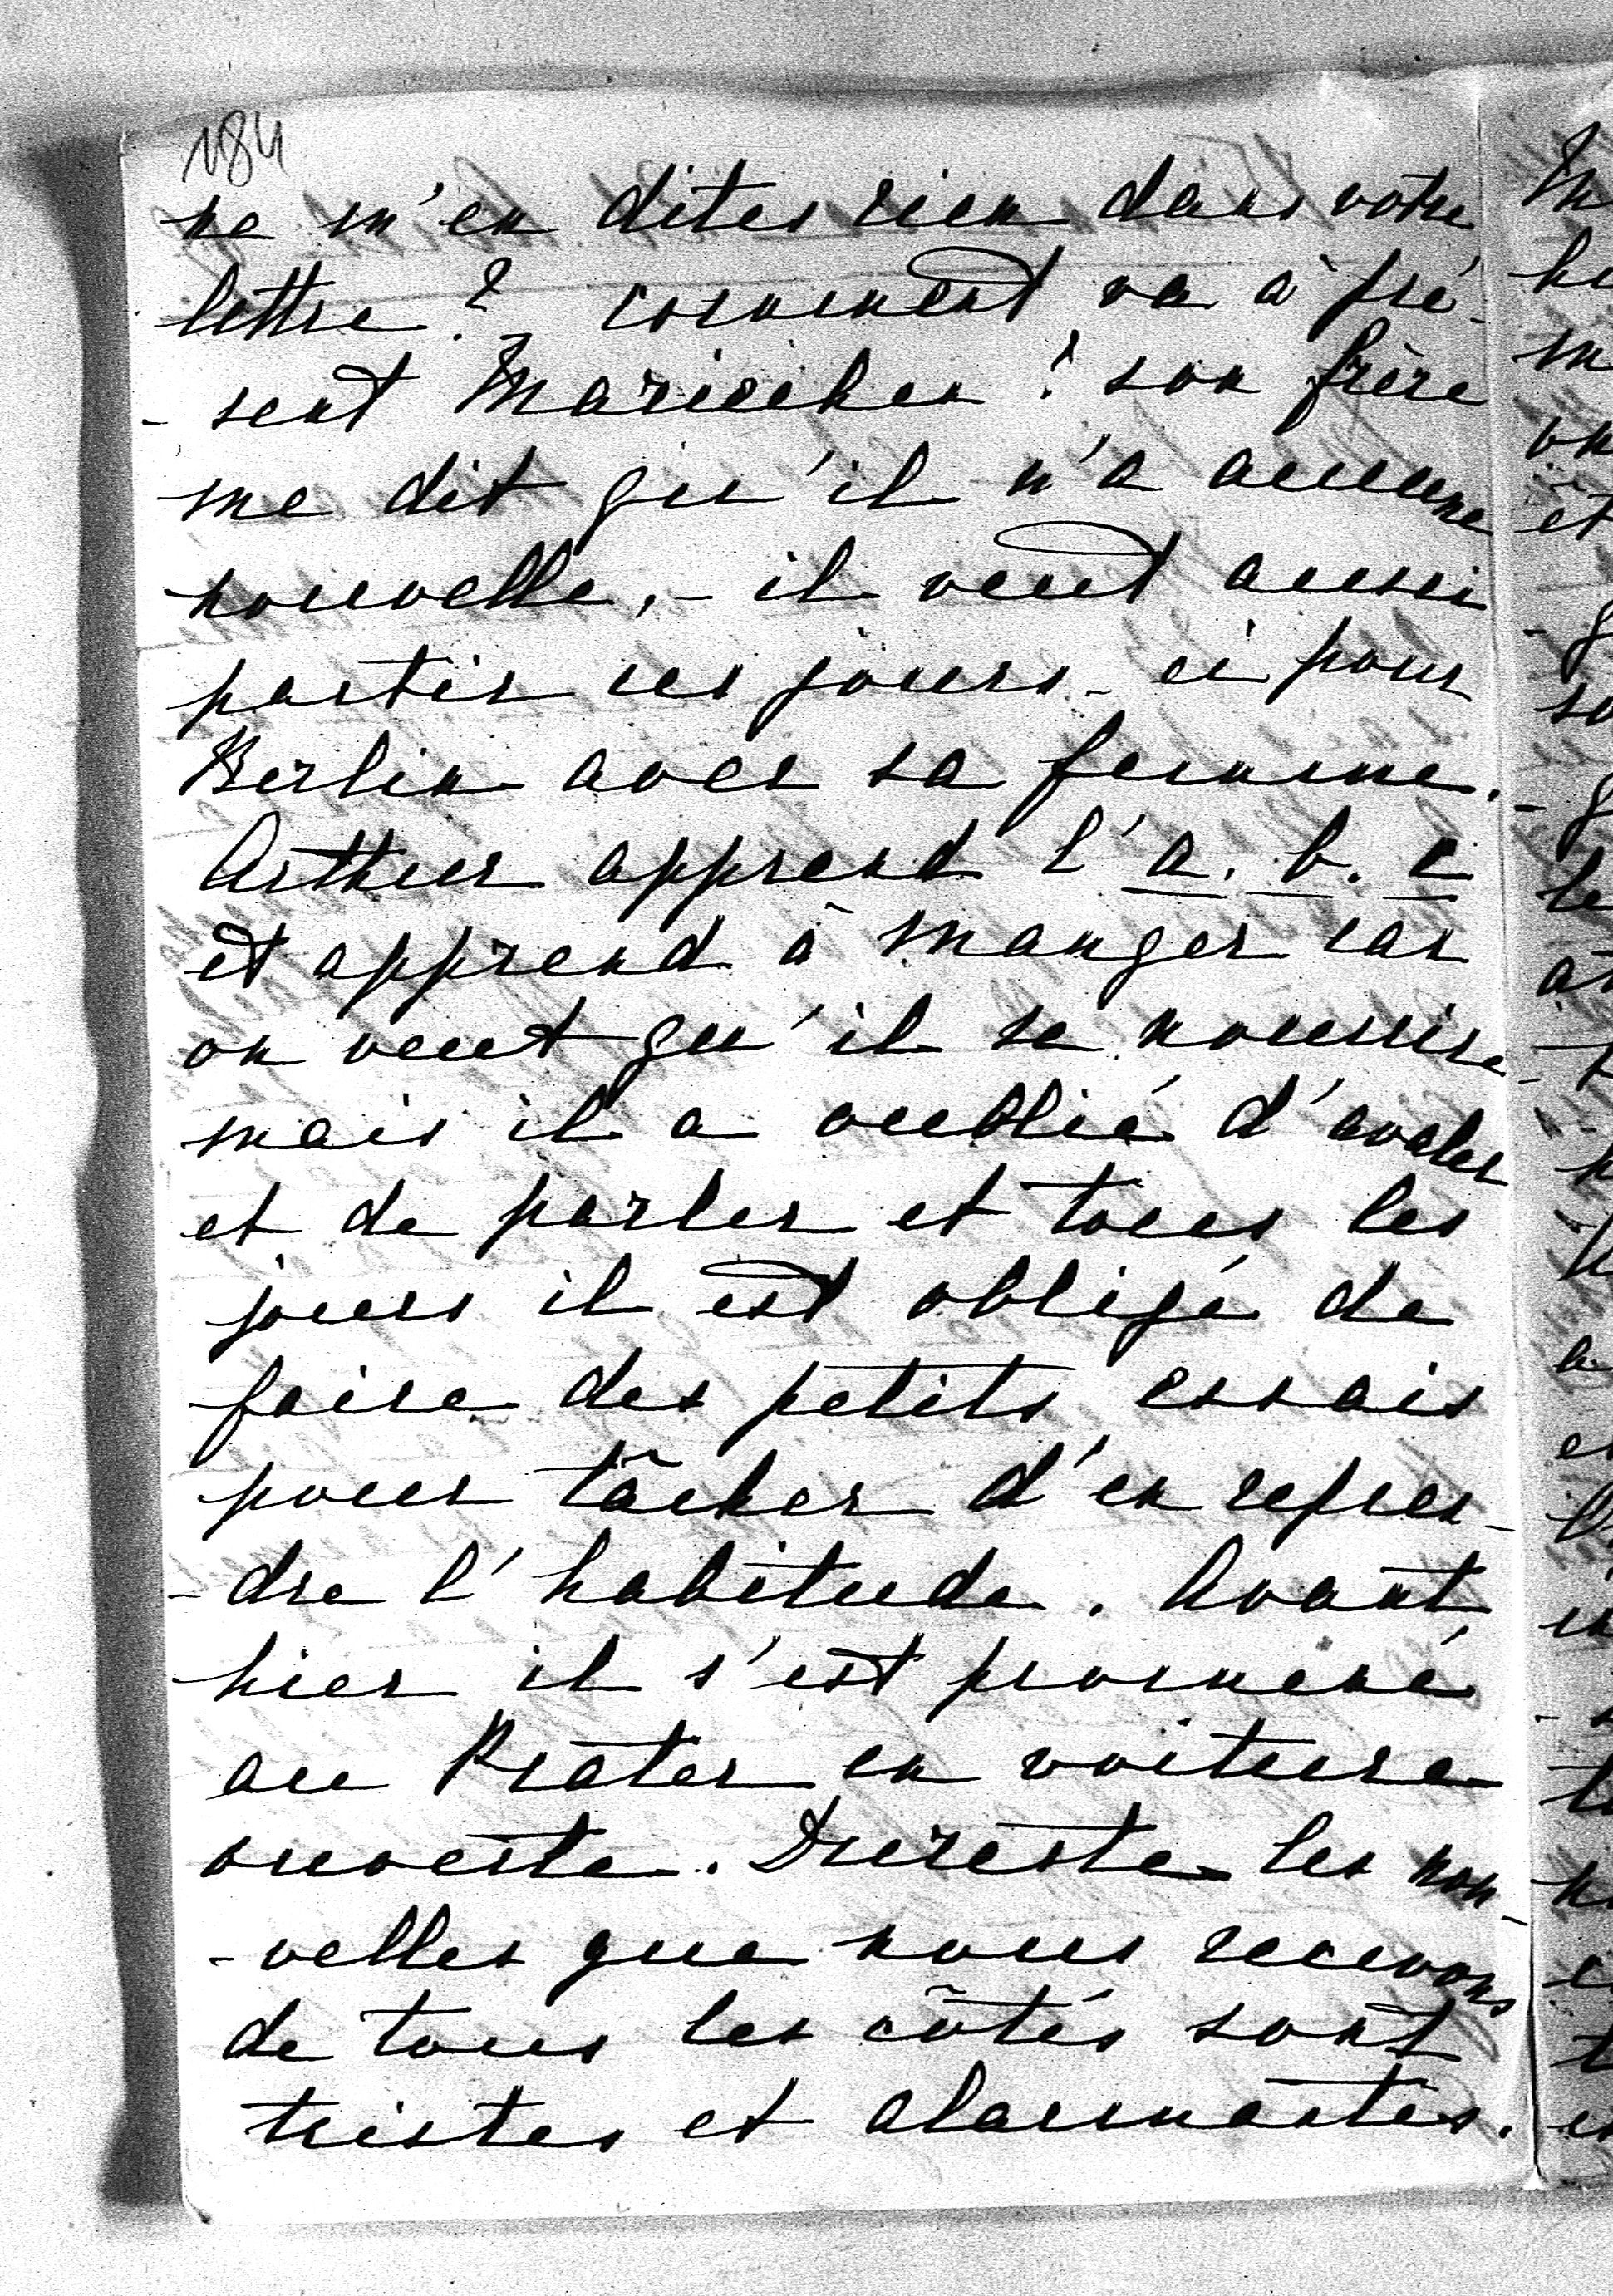 184
ne m'en dites rien dans votre
lettre? comment va à pré-
-sent Mariechen? son frère
me dit qu'il n'a aucune
nouvelle, - il veut aussi
partir ces jours-ci pour
Berlin avec sa femme.
Arthur apprend l'a. b. c
et apprend à manger car
on veut qu'il se nourrisse
mais il a oublié d'avaler
et de parler et tous les
jours il est obligé de
faire des petits essais
pour tâcher d'en repren-
-dre l'habitude. Avant
hier il s'est promené
au Prater en voiture
ouverte. Dureste les nou-
-velles que nous recevons
de tous les côtés sont
tristes et alarmantes.